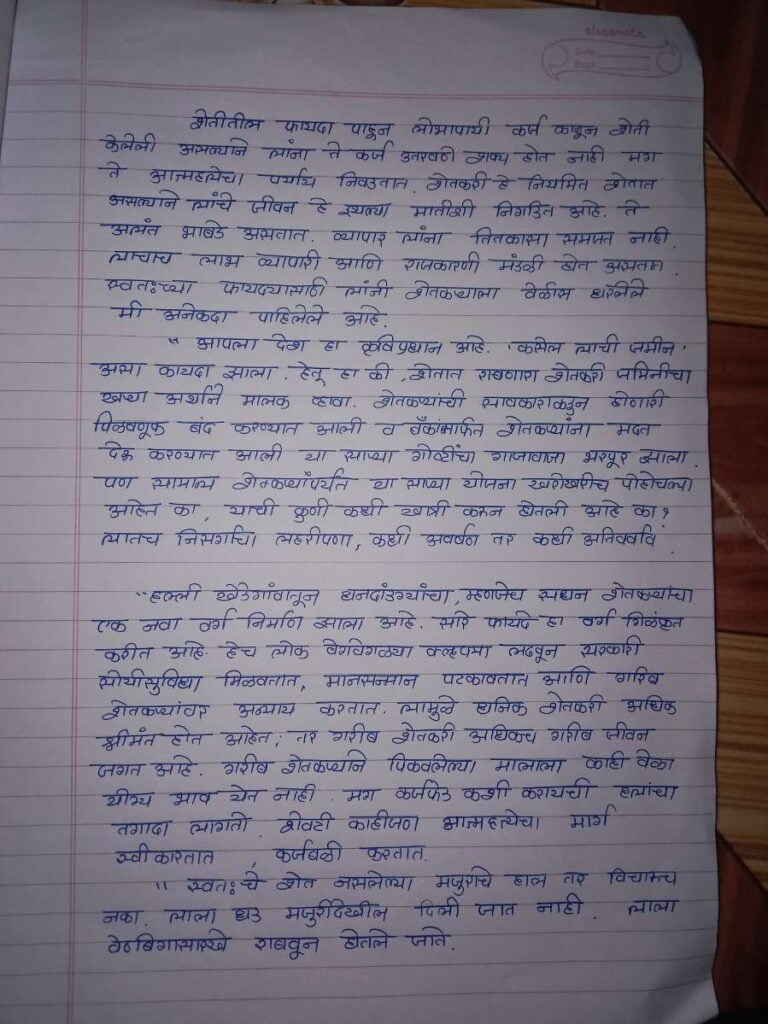 classmate
Date
Page
शेतीतील फायदा पाहून लोभापायी कर्ज काढून शेती
केलेली असल्याने त्यांना ते कर्ज उतरवणे शक्य होत नाही मग
ते आत्महत्येचा पर्याय निवडतात. शेतकरी हे नियमित शेतात
असल्याने त्यांचे जीवन हे इथल्या मातीशी निगडित आहे. ते
अत्यंत भाबडे असतात. व्यापार त्यांना तितकासा समजत नाही.
त्याचाच लाभ व्यापारी आणि राजकारणी मंडळी घेत असतात.
स्वतःच्या फायद्यासाठी त्यांनी शेतकऱ्याला वेळीस धरलेले
मी अनेकदा पाहिलेले आहे.
" आपला देश हा कृषिप्रधान आहे. 'कसेल त्याची जमीन'
असा कायदा झाला. हेतू हा की, शेतात राबणारा शेतकरी जमिनीचा
खऱ्या अर्थाने मालक व्हावा. शेतकऱ्यांची सावकाराकडुन होणारी
पिळवणूक बंद करण्यात आली व बँकांमार्फत शेतकऱ्यांना मदत
देऊ करण्यात आली या साऱ्या गोष्टींचा गाजावाजा भरपूर झाला.
पण सामान्य शेतकऱ्यांपर्यंत या साऱ्या योजना खरोखरीच पोहोचल्या
आहेत का, याची कुणी कधी खात्री करून घेतली आहे का?
त्यातच निसर्गाचा लहरीपणा, कधी अवर्षण तर कधी अतिवर्षाव.
"हल्ली खेडेगांवातून धनदांडग्यांचा, म्हणजेच सधन शेतकऱ्यांचा
एक नवा वर्ग निर्माण झाला आहे. सारे फायदे हा वर्ग गिळंकृत
करीत आहे. हेच लोक वेगवेगळ्या क्लृप्त्या लढवून सरकारी
सोयीसुविधा मिळवतात, मानसन्मान पटकावतात आणि गरिब
शेतकऱ्यांवर अन्याय करतात. त्यामुळे धनिक शेतकरी अधिक
श्रीमंत होत आहेत; तर गरीब शेतकरी अधिकच गरीब जीवन
जगत आहे. गरीब शेतकऱ्याने पिकवलेल्या मालाला काही वेळा
योग्य भाव येत नाही. मग कर्जफेड कशी करायची हत्यांचा
तगादा लागतो. शेवटी काहीजण आत्महत्येचा मार्ग
स्वीकारतात , कर्जबळी करतात.
" स्वतःचे शेत नसलेल्या मजुराचे हाल तर विचारूच
नका. त्याला धड मजुरीदेखील दिली जात नाही. त्याला
वेठबिगारासारखे राबवून घेतले जाते.